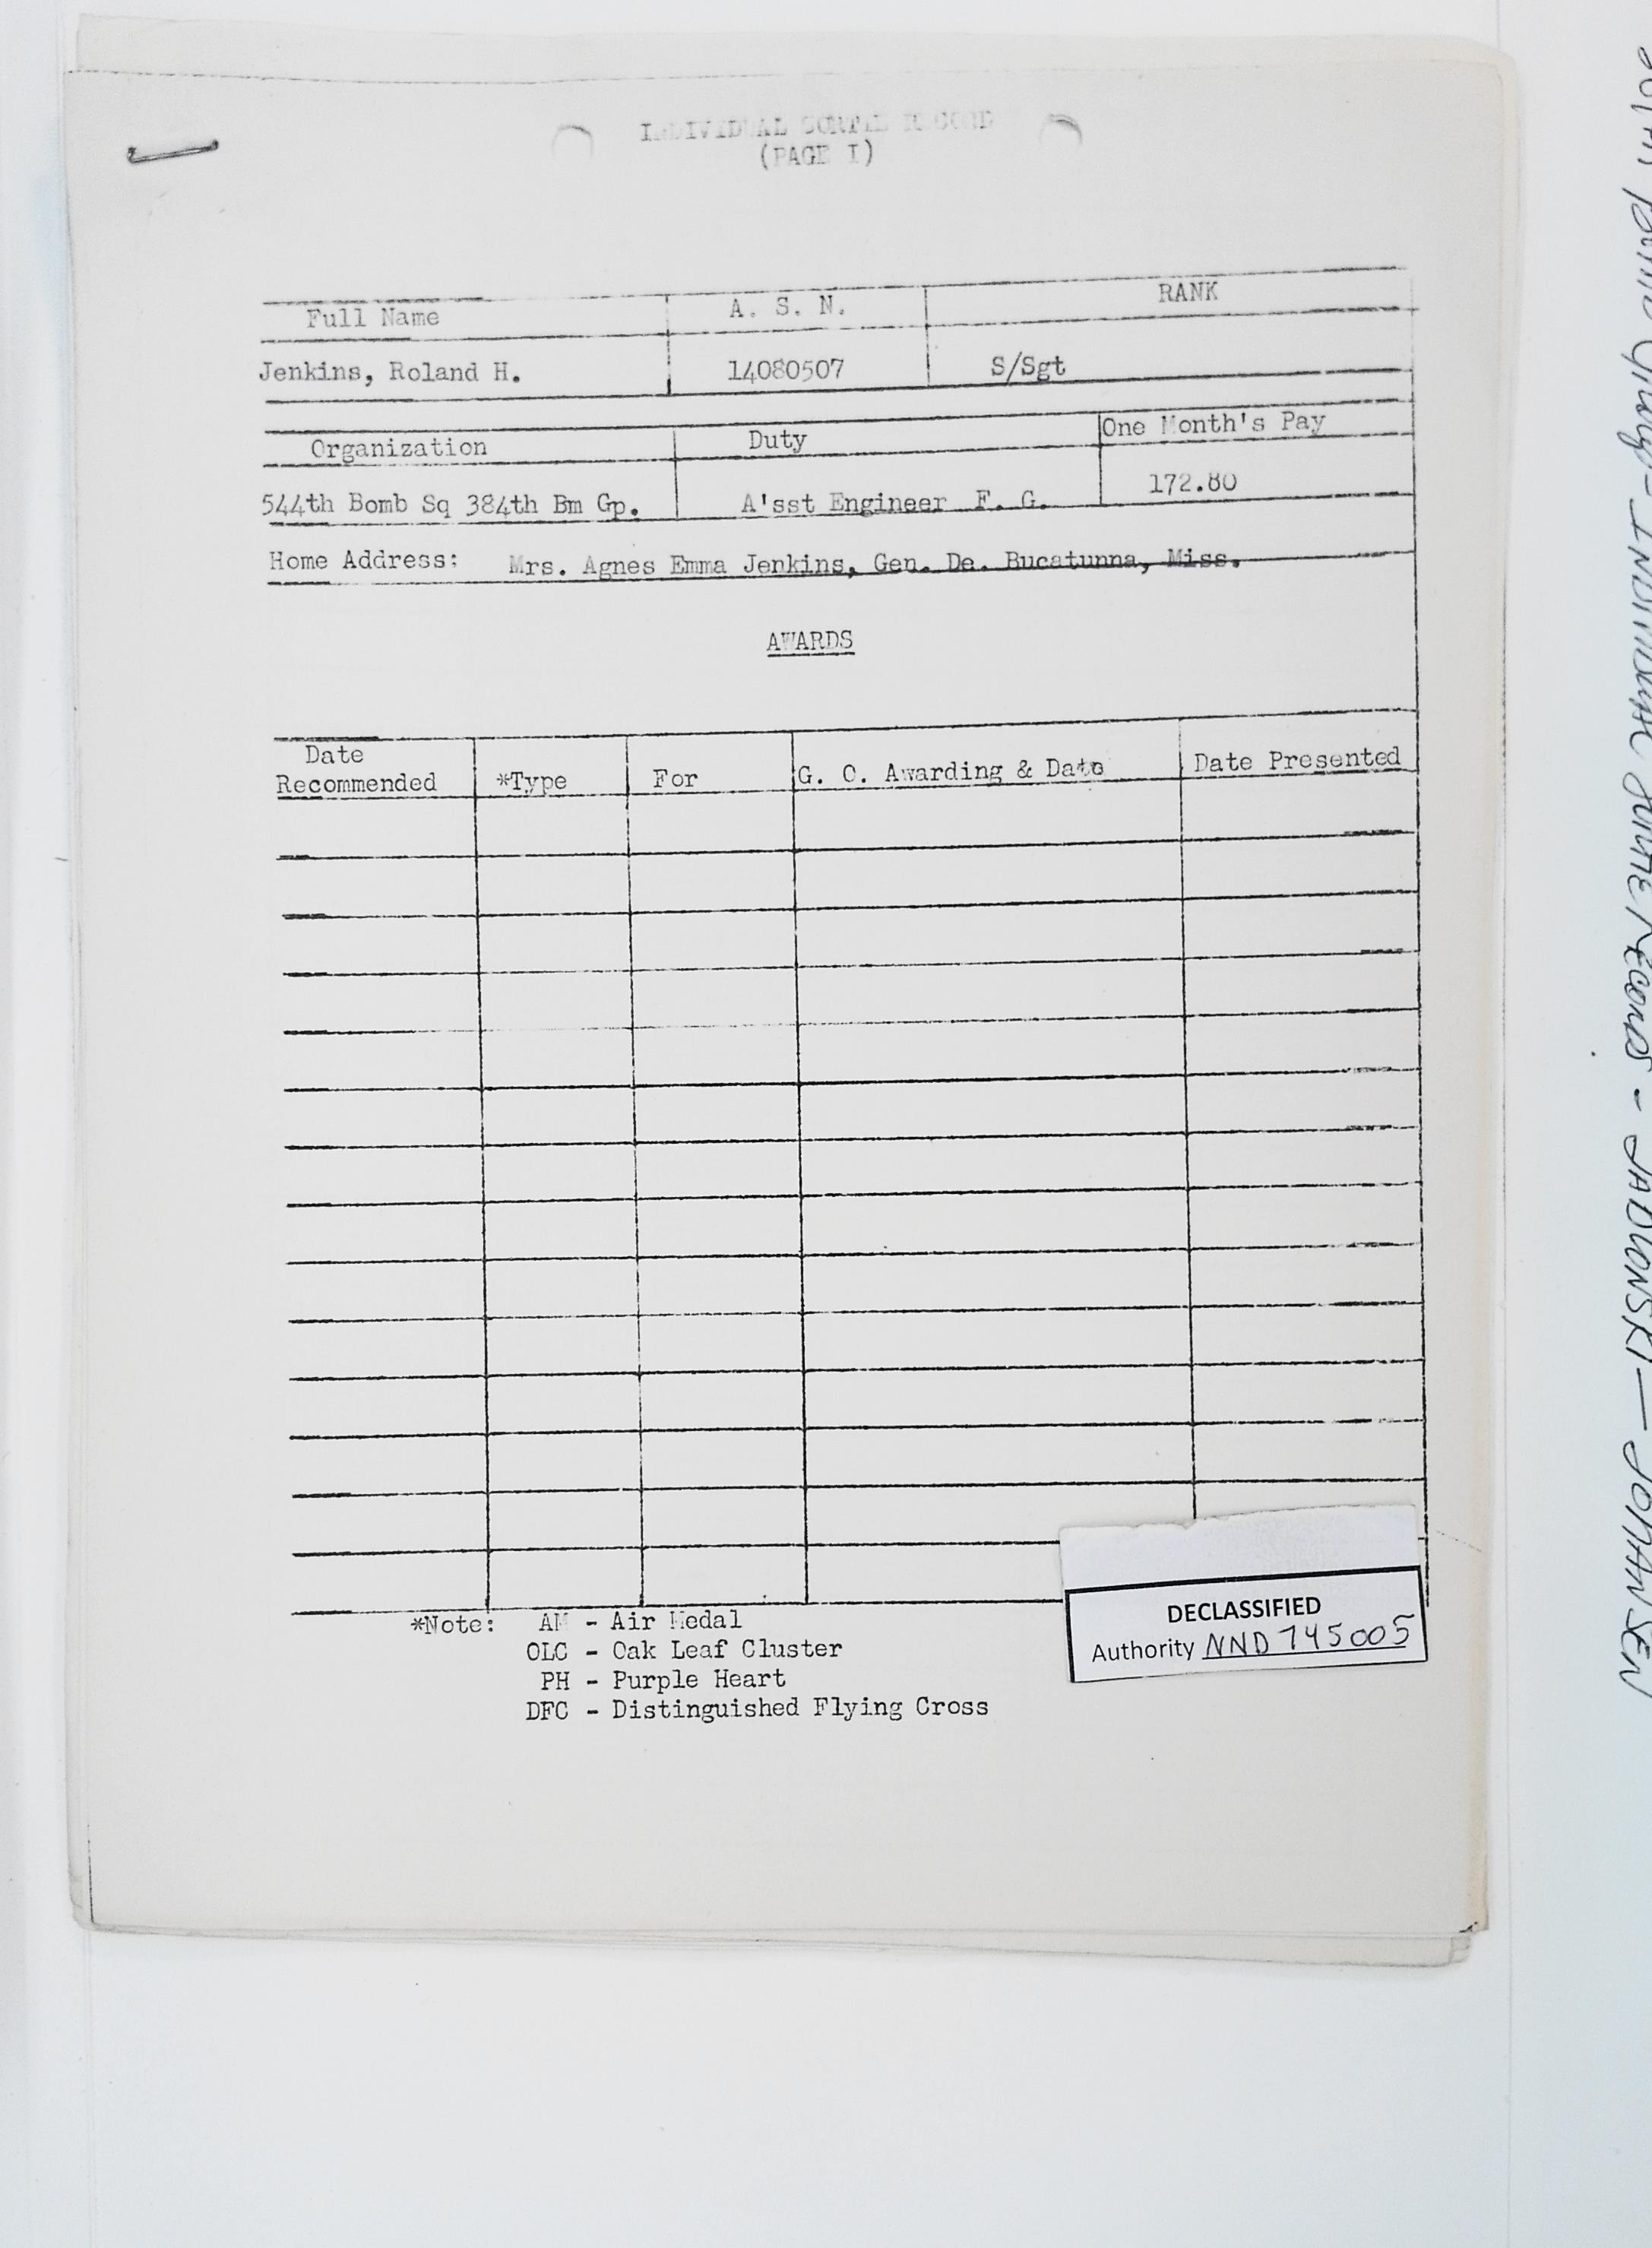 INDIVIDUAL SORTIE RECORD
(PAGE I)
Full Name A. S. N. RANK
Jenkins, Roland H. 14080507 S/Sgt
Organization Duty One Month's Pay
544th Bomb Sq 384th Bm Gp. A'sst Engineer F. G. 172.80
Home Address: Mrs. Agnes Emma Jenkins, Gen. De. Bucatunna, Miss.
AWARDS
Date
Recommended *Type For G. O. Awarding & Date Date Presented
*Note: AM - Air Medal
OLC - Oak Leaf Cluster
PH - Purple Heart
DFC - Distinguished Flying Cross
DECLASSIFIED
Authority NND 745005
Bomb Group - INDIVIDUAL SORTIE RECORDS - JABLONSKI - JOHANSEN